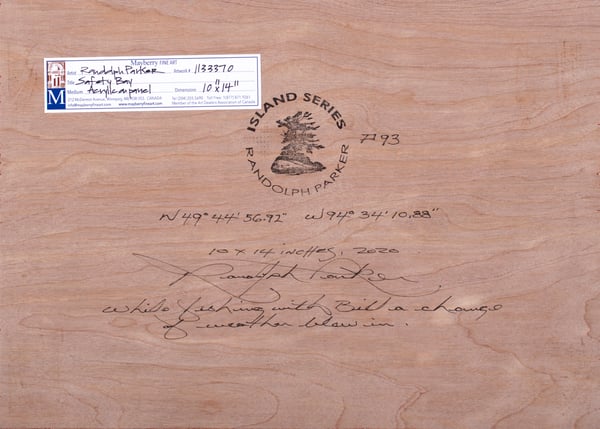 Mayberry FINE ART
Artist Randolph Parker Artwork # 1133370
Title Safety Bay
Medium Acrylic on panel Dimensions 10" x 14"
212 McDermot Avenue, Winnipeg, MB R3B 0S3, CANADA
info@mayberryfineart.com www.mayberryfineart.com Member of the Art Dealers Association of Canada
M
ISLAND SERIES
RANDOLPH PARKER
#93
N 49° 44' 56.92" W 94° 34' 10.88"
10 x 14 inches, 2020
Randolph Parker
While fishing with Bill a change
of weather blew in.